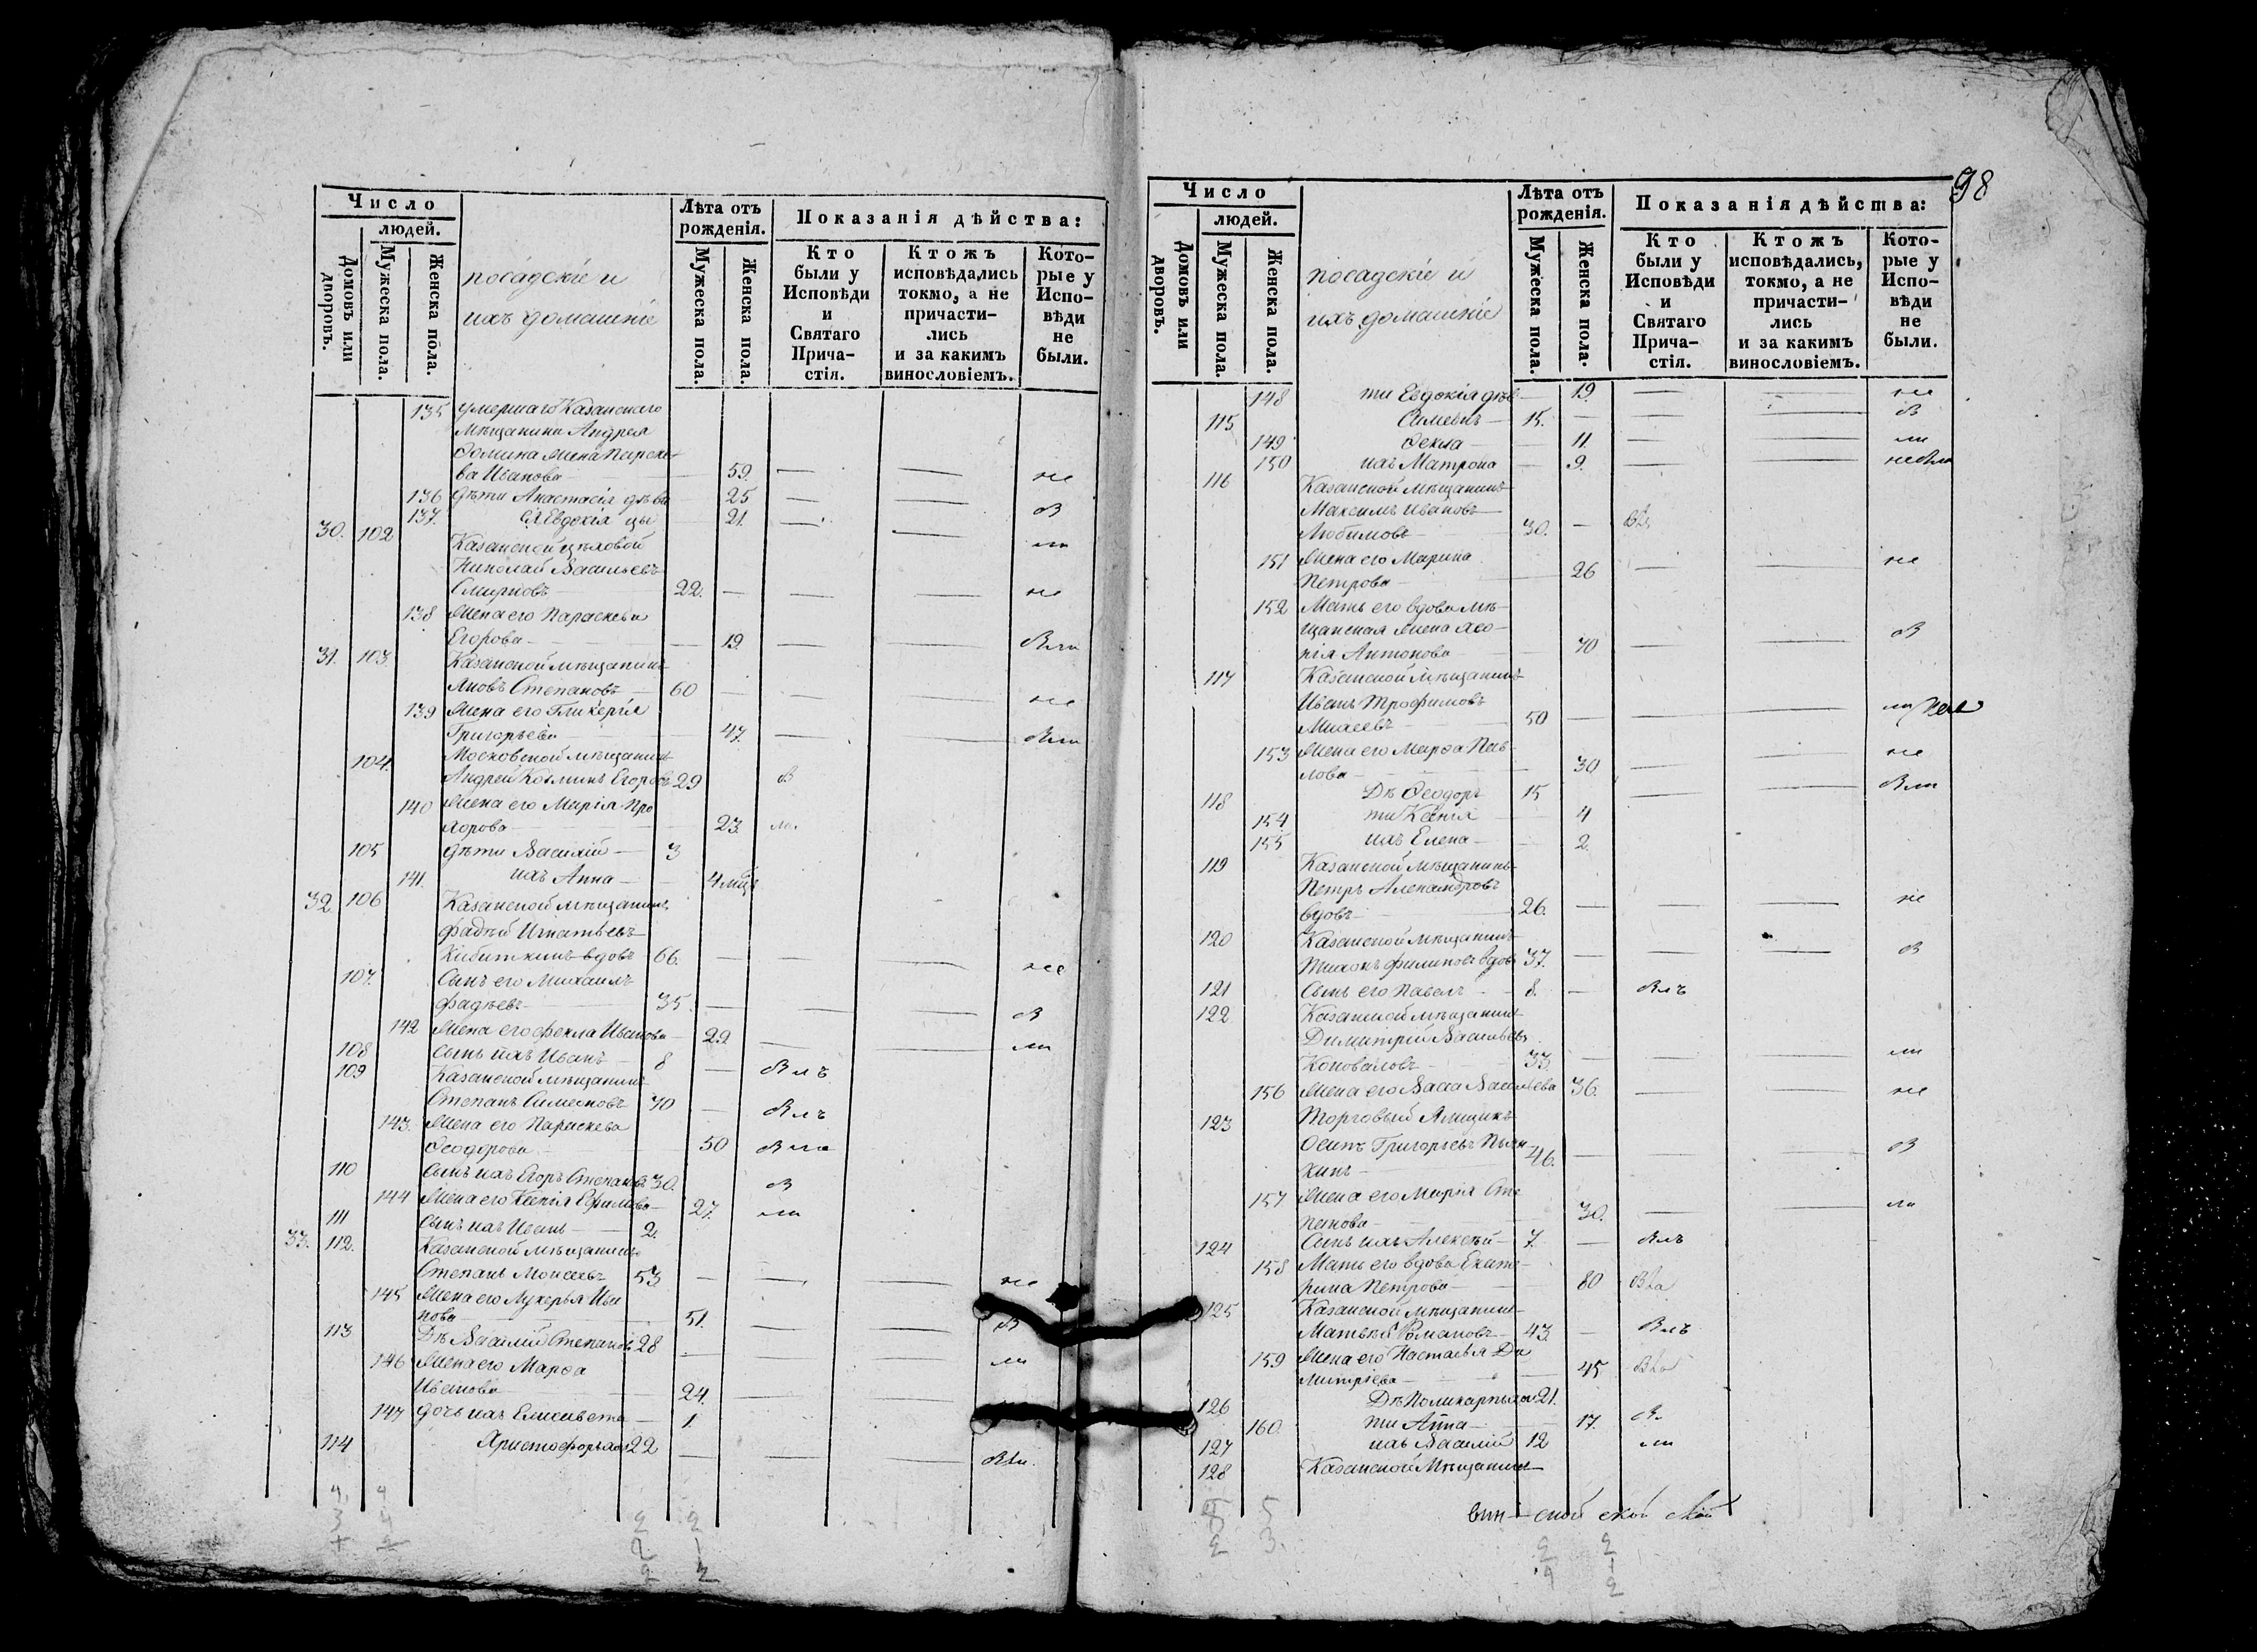 98
Число
людей.
Домовъ или дворовъ.
Мужеска пола.
Женска пола.
посадскіе и
ихъ домашніе
Лѣта отъ
рожденія.
Мужеска пола.
Женска пола.
Показанія дѣйства:
Кто
были у
Исповѣди
и
Святаго
Прича-
стія.
Ктожъ
исповѣдались
токмо, а не
причасти-
лись
и за какимъ
винословіемъ.
Кото-
рые у
Испо-
вѣди
не
были.
135 умершаго Казанскаго
мѣщанина Андрея
Ѳомина жена Параске-
ва Иванова 59. не
136 дѣти Анастасія дѣви 25 в
137. Евдокія цы 21. ли
30. 102 Казанской цѣховой
Николай Васильевъ
Смирновъ 22. не
138 жена его Параскева
Егорова 19. были
31. 103. Казанской мѣщанинъ
Яковъ Степановъ 60 не
139 жена его Гликерія
Григорьева 47. были
104. Московской мѣщанинъ
Андрей Козминъ Егоровъ 29 в
140 жена его Марія Про
хорова 23. ла
105 дѣти Василій 3
141. ихъ Анна 4 мѣц
32. 106 Казанской мѣщанинъ
Фадѣй Игнатьевъ
Кибиткинъ вдовъ 66. не
107. Сынъ его Михаилъ
Фадѣевъ 35. в
142 жена его Фекла Иванова 29 ли
108 сынъ ихъ Иванъ 8 былъ
109 Казанской мѣщанинъ
Степанъ Симеоновъ 70 былъ
143. жена его Параскева
Ѳеодорова 50 была
110 сынъ ихъ Егоръ Степановъ 30. в
144 жена его Ксенія Ефимова 27. ли
111 сынъ ихъ Иванъ 2.
33. 112. Казанской мѣщанинъ
Степанъ Моисеевъ 53 не
145 жена его Лукерья Ива
нова 51. в
113 Дѣ Василій Степановъ 28 ли
146 жена его Марѳа
Иванова 24.
147 дочь ихъ Елисавета 1.
114 Христофоръ хол 22 были.
Число
людей.
Домовъ или дворовъ.
Мужеска пола.
Женска пола.
посадскіе и
ихъ домашніе
Лѣта отъ
рожденія.
Мужеска пола.
Женска пола.
Показанія дѣйства:
Кто
были у
Исповѣди
и
Святаго
Прича-
стія.
Ктожъ
исповѣдались,
токмо, а не
причасти-
лись
и за какимъ
винословіемъ.
Кото-
рые у
Испо-
вѣди
не
были.
148 ти Евдокія дѣв 19. не
115. Симеонъ 15. в
149 Ѳекла 11. ли
150 ихъ Матрона 9. небыли
116 Казанской мѣщанинъ
Максимъ Ивановъ
Любимовъ 30. былъ
151 жена его Марина
Петрова 26 не
152 Мать его вдова мѣ-
щанская жена
нія Антонова 70 в
117 Казанской мѣщанинъ
Иванъ Трофимовъ
Михеевъ 50 ли
153 жена его Марѳа Пав-
лова 30 не
118 Дѣ Ѳеодоръ 15 были
154 ти Ксенія 4
155 ихъ Елена 2.
119 Казанской мѣщанинъ
Петръ Александровъ
вдовъ 26. не
120 Казанской мѣщанинъ
Тихонъ Филиповъ вдовъ 37. в
121 Сынъ его Павелъ 8. былъ
122 Казанской мѣщанинъ
Димитрій Васильевъ
Коноваловъ 33. ли
156 жена его Васса Васильева 36. не
123 Торговый Ямщикъ
Осипъ Григорьевъ
хинъ 46. в
157 жена его Марія Сте
панова 30. ли
124 Сынъ ихъ Алексѣй 7. былъ
158 Мать его вдова Екате-
рина Петрова 80 была
125 Казанской мѣщанинъ
Матвѣй Романовъ 43. былъ
159 жена его Настасья Ди
митріева 45 была
126 Дѣ Поликарпъ хол 21.
160. ти Анна 17. бы
127 ихъ Василій 12 ли
128 Казанской Мѣщанинъ